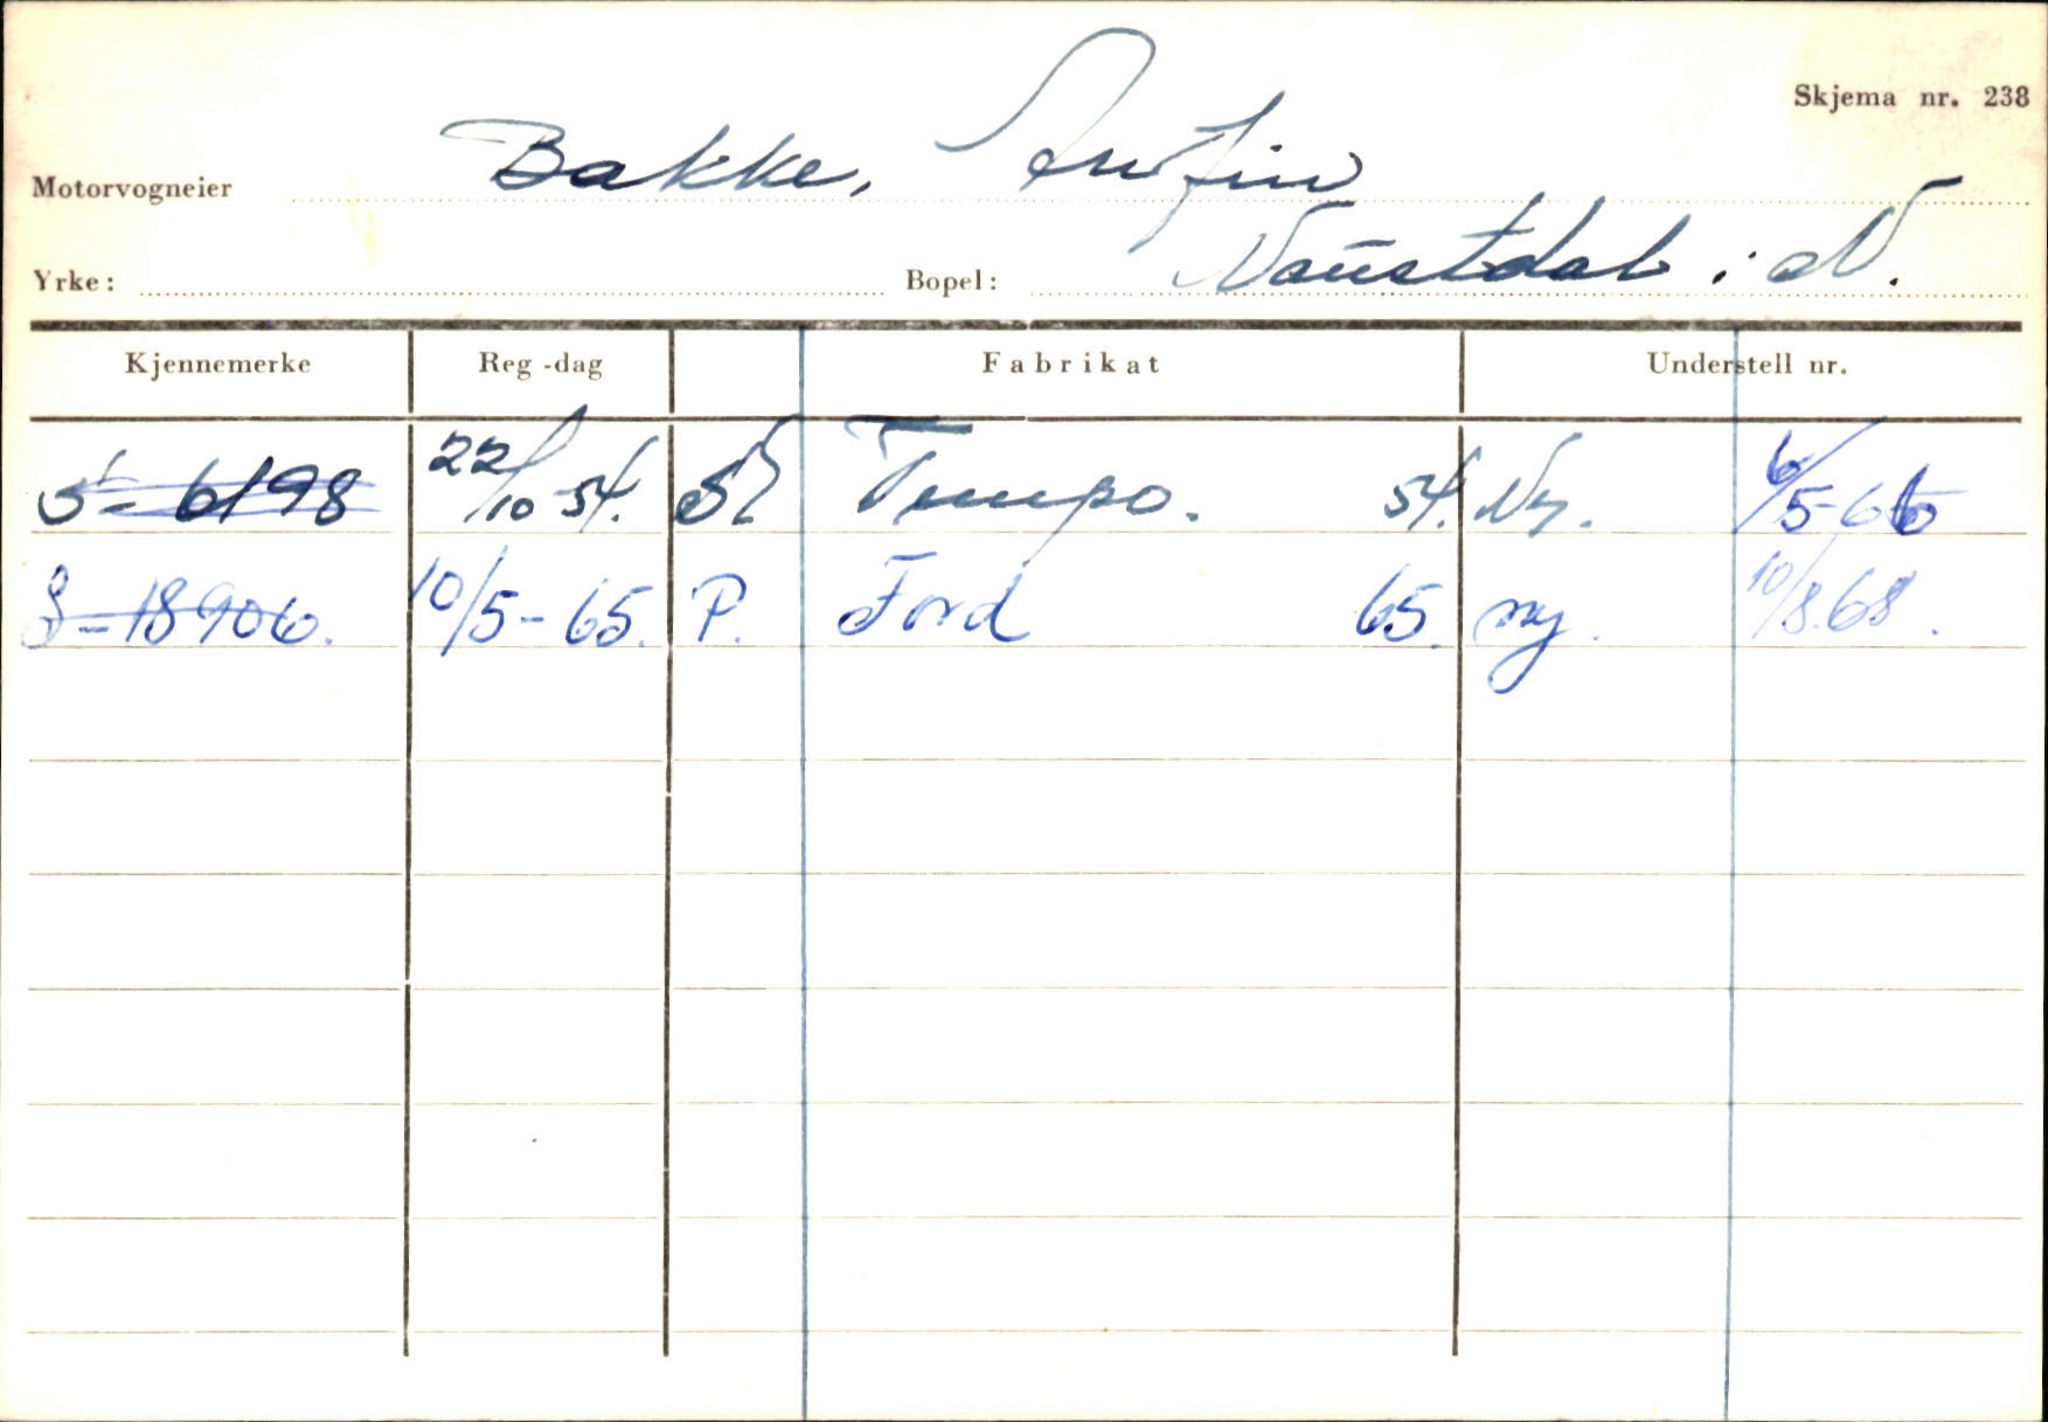 Skjema nr. 238
Motorvogneier Bakke, Arnfinn
Yrke: Bopel: Naustdal i N.
Kjennemerke Reg-dag Fabrikat Understell nr.
S-6198 22/10-54. Tempo. 54. Ny. 6/5-65
S-18906. 10/5-65. P. Ford 65. ny. 10/8.68.